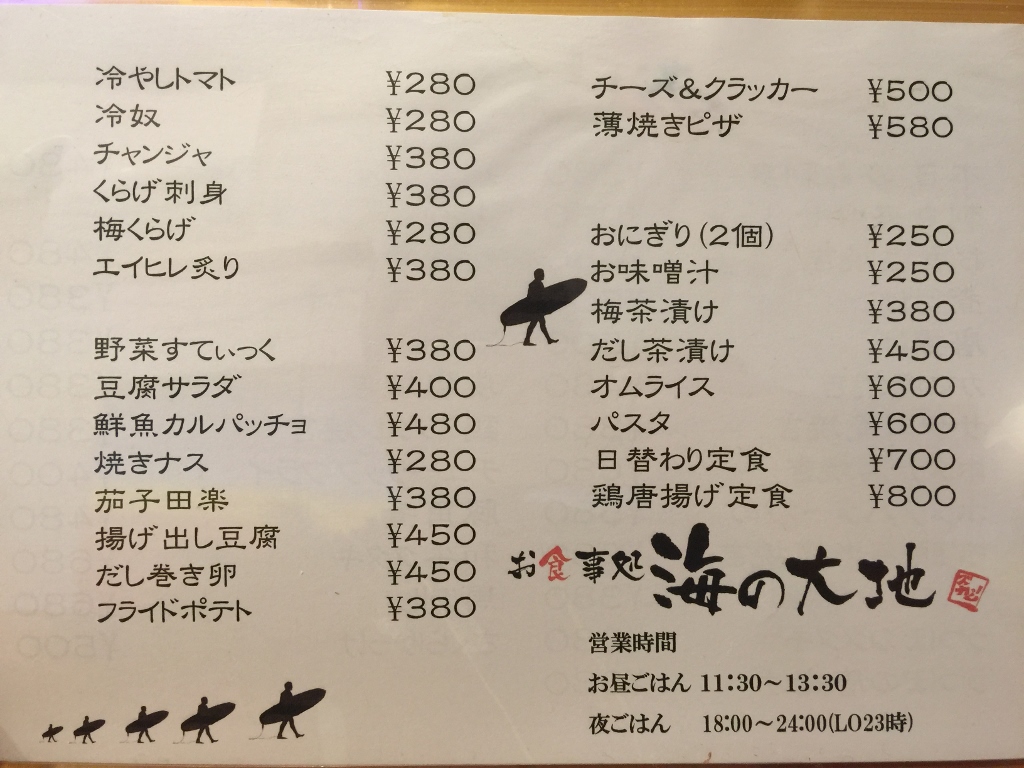 冷やしトマト ¥280
冷奴 ¥280
チャンジャ ¥380
くらげ刺身 ¥380
梅くらげ ¥280
エイヒレ炙り ¥380
野菜すてぃっく ¥380
豆腐サラダ ¥400
鮮魚カルパッチョ ¥480
焼きナス ¥280
茄子田楽 ¥380
揚げ出し豆腐 ¥450
だし巻き卵 ¥450
フライドポテト ¥380
チーズ&クラッカー ¥500
薄焼きピザ ¥580
おにぎり(2個) ¥250
お味噌汁 ¥250
梅茶漬け ¥380
だし茶漬け ¥450
オムライス ¥600
パスタ ¥600
日替わり定食 ¥700
鶏唐揚げ定食 ¥800
お食事処 海の大地
営業時間
お昼ごはん 11:30〜13:30
夜ごはん 18:00〜24:00(LO23時)